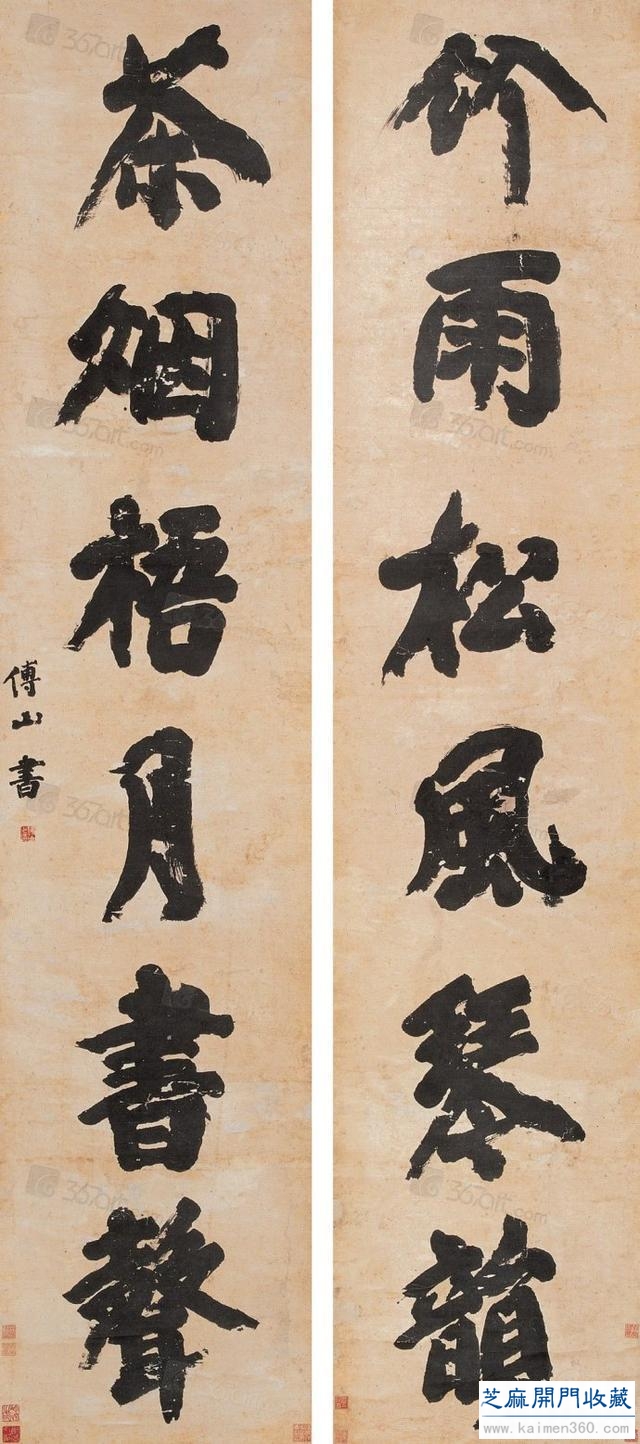 竹雨松風琴韻
茶烟梧月書聲
傅山書
367art.com
芝麻開門收藏
www.kaimen360.com